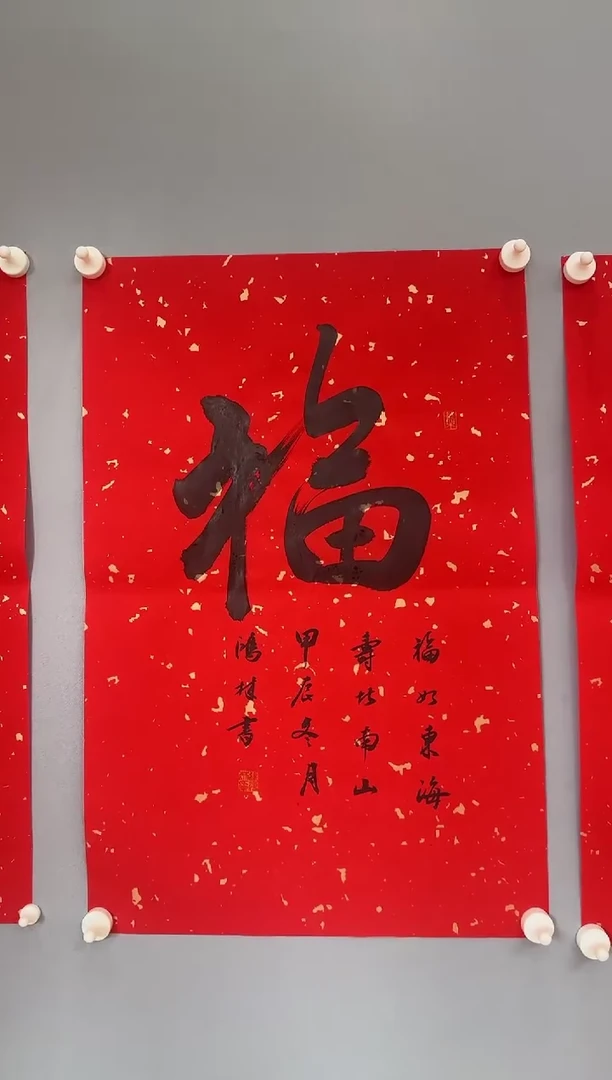 福
福如東海
壽比南山
甲辰冬月
鴻桂書